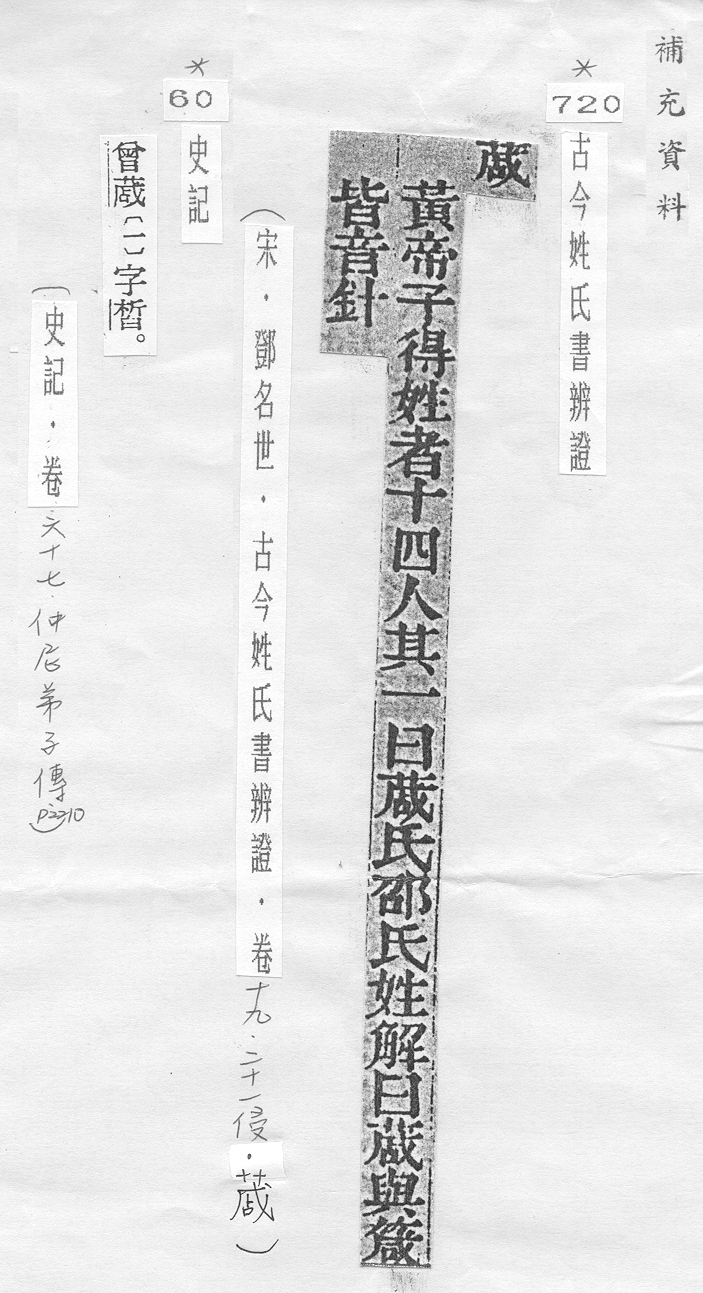 補充資料
*
720
古今姓氏書辨證
蒧
黃帝子得姓者十四人其一曰蒧氏邵氏姓解曰蒧與箴
皆音針
(宋．鄧名世．古今姓氏書辨證．卷十九．二十一侵．蒧)
*
60
史記
曾蒧〔一〕字皙。
(史記．卷六十七．仲尼弟子傳 P2210)